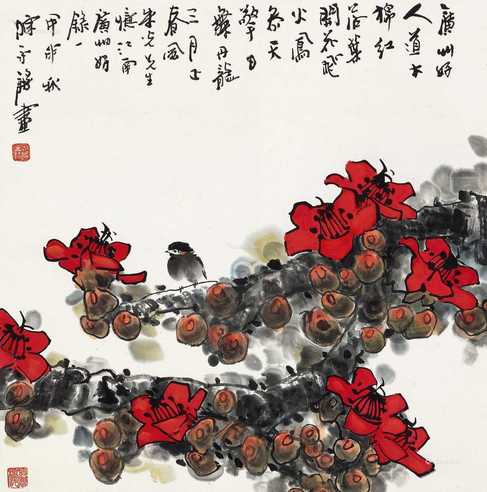 廣州好
人道木
棉紅
落葉
開花飛
火鳳
參天
擎日
舞丹龍
三月正
春風
朱光先生
憶江南
廣州好
錄一
甲申秋
陳永鏘畫